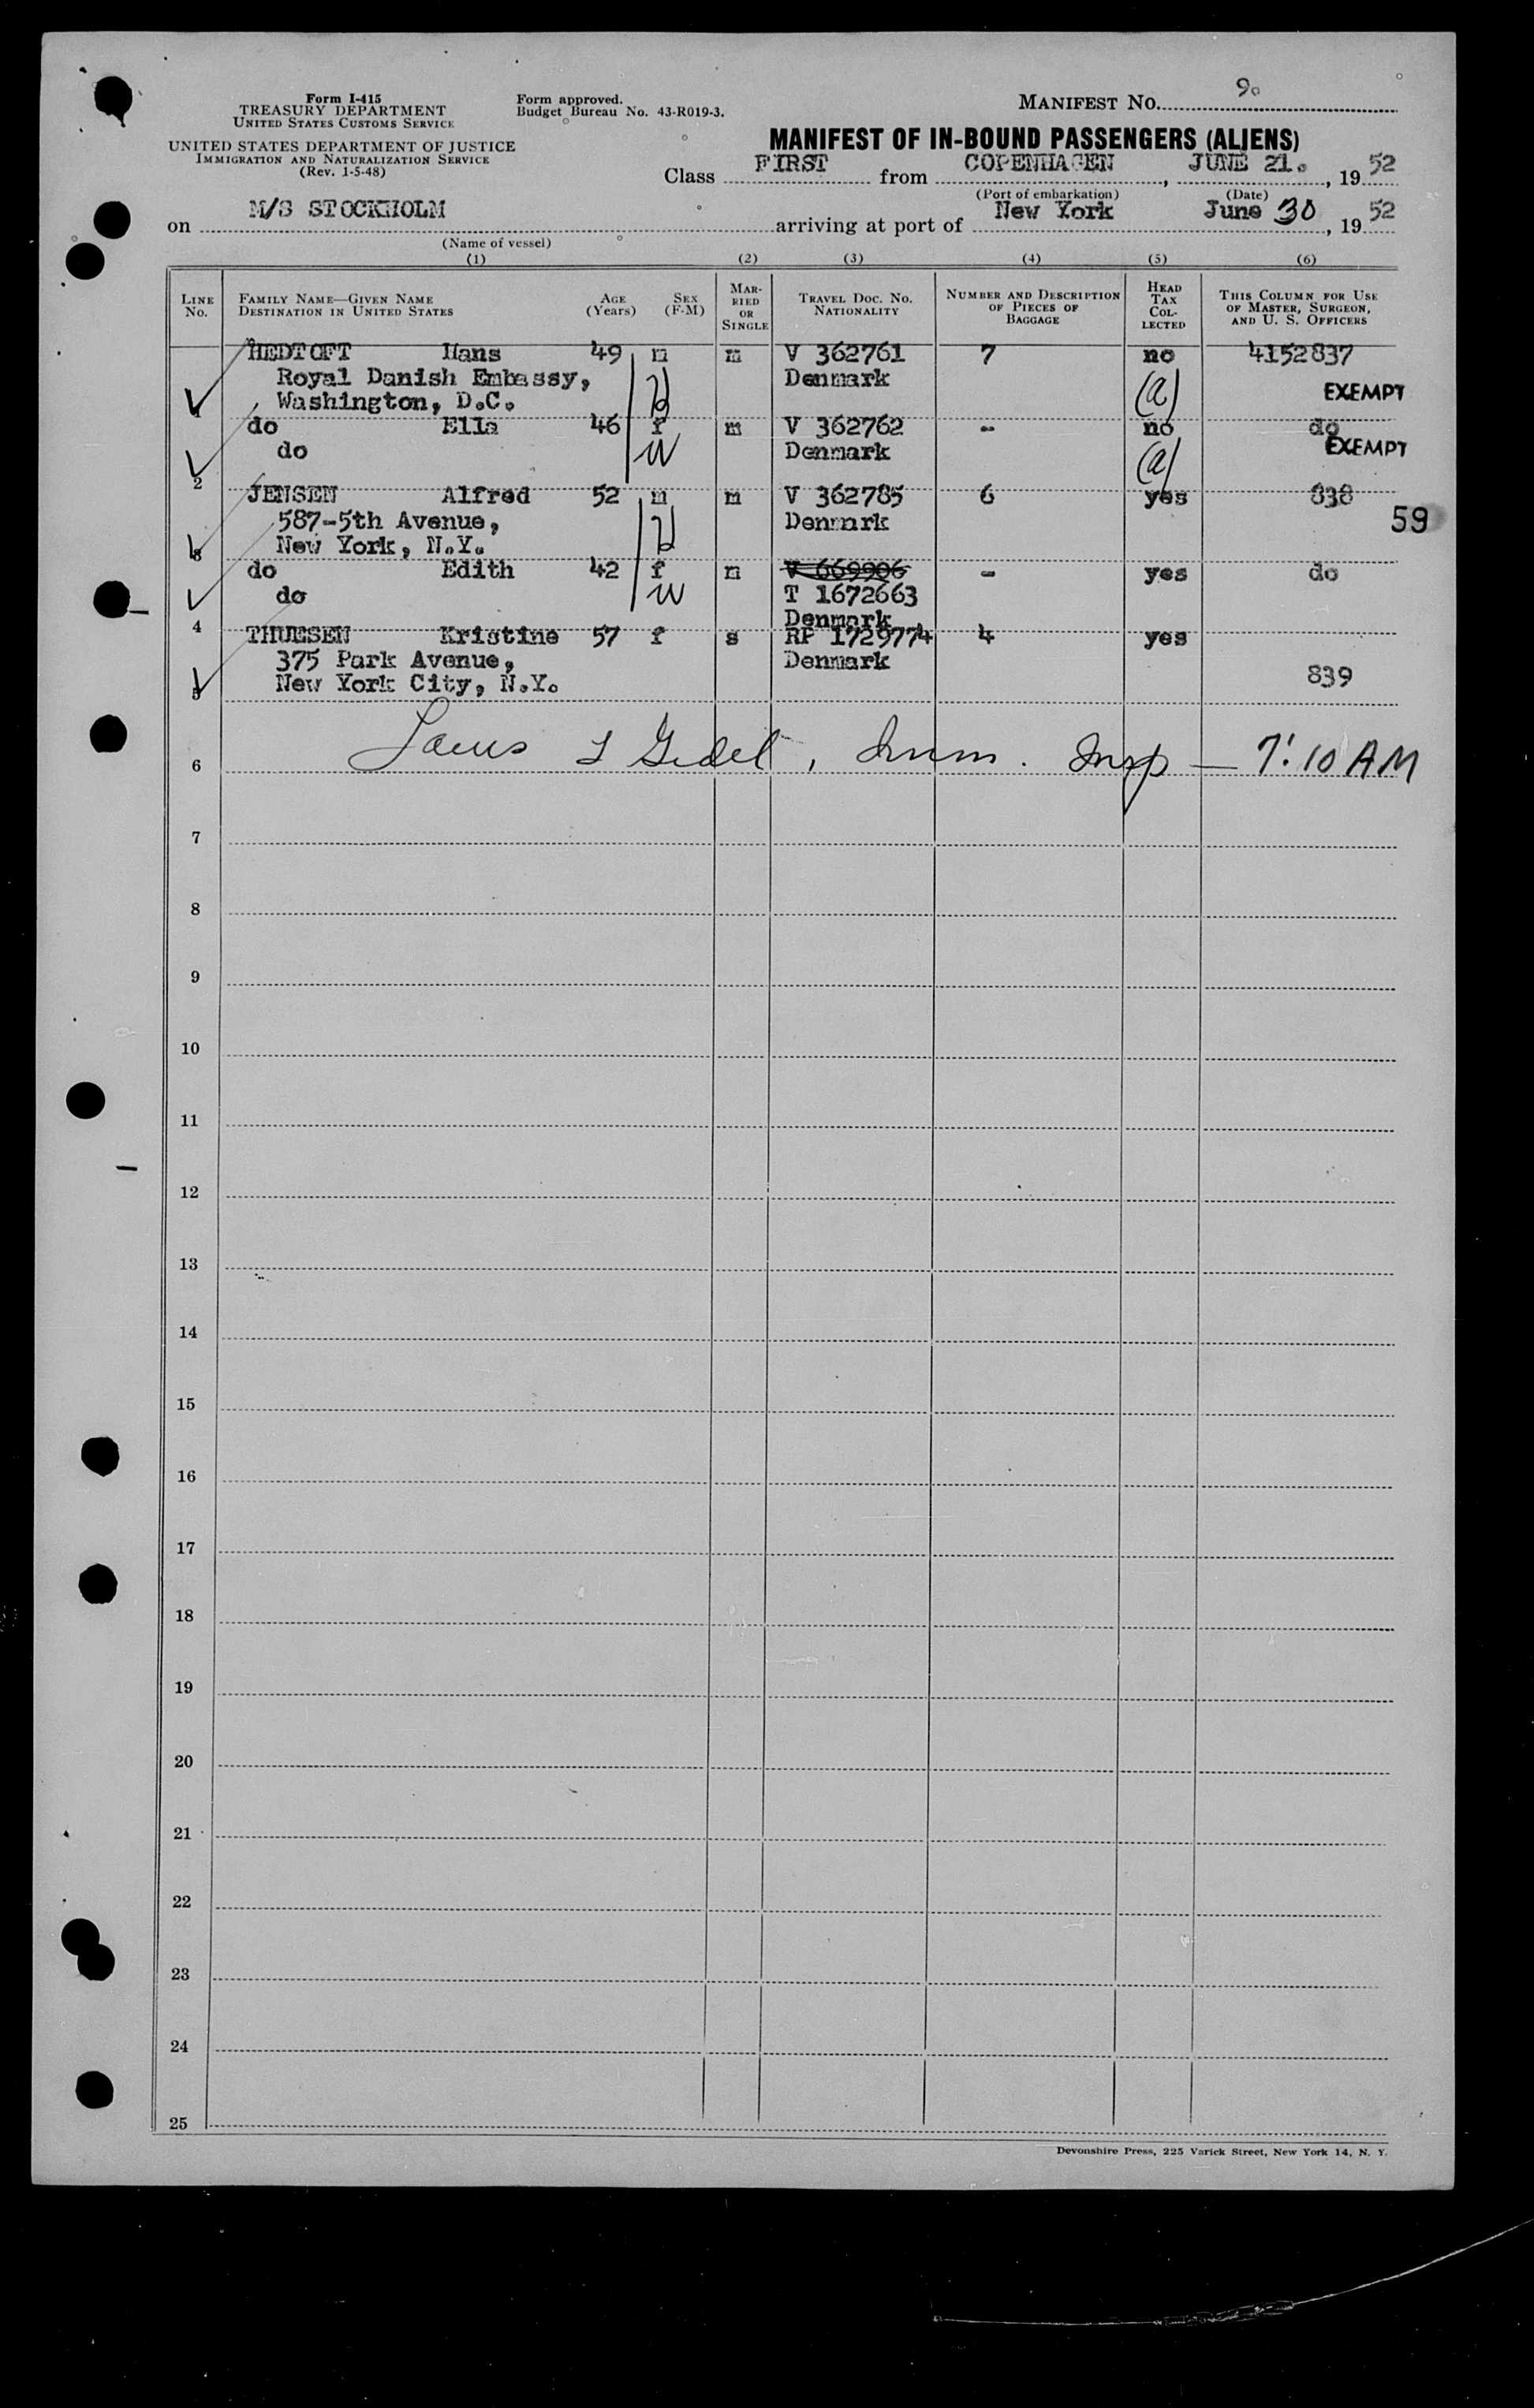 Form I-415
TREASURY DEPARTMENT
UNITED STATES CUSTOMS SERVICE
UNITED STATES DEPARTMENT OF JUSTICE
IMMIGRATION AND NATURALIZATION SERVICE
(Rev. 1-5-48)
Form approved.
Budget Bureau No. 43-R019-3.
MANIFEST NO. 90
MANIFEST OF IN-BOUND PASSENGERS (ALIENS)
Class FIRST from COPENHAGEN, JUNE 21., 1952
(Port of embarkation) (Date)
on M/S STOCKHOLM arriving at port of New York June 30, 1952
(Name of vessel)
(1) (2) (3) (4) (5) (6)
LINE NO. FAMILY NAME—GIVEN NAME DESTINATION IN UNITED STATES AGE (Years) SEX (F-M) MARRIED OR SINGLE TRAVEL DOC. NO. NATIONALITY NUMBER AND DESCRIPTION OF PIECES OF BAGGAGE HEAD TAX COLLECTED THIS COLUMN FOR USE OF MASTER, SURGEON, AND U. S. OFFICERS
HEDTOFT Hans 49 m m V 362761 7 no 4152837
Royal Danish Embassy, H Denmark (a) EXEMPT
Washington, D.C.
do Ella 46 f m V 362762 - no do
do W Denmark (a) EXEMPT
2
JENSEN Alfred 52 m m V 362785 6 yes 838
587-5th Avenue, H Denmark 59
New York, N.Y.
3
do Edith 42 f m V 669906 - yes do
do W T 1672663
Denmark
4
THUESEN Kristine 57 f s RP 1729774 4 yes
375 Park Avenue, Denmark
New York City, N.Y. 839
5
6 Imm. Insp — 7:10 AM
7
8
9
10
11
12
13
14
15
16
17
18
19
20
21
22
23
24
25
Devonshire Press, 225 Varick Street, New York 14, N. Y.